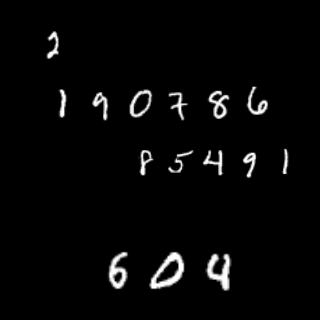 2
1 9 0 7 8 6
8 5 4 9 1
6 0 4